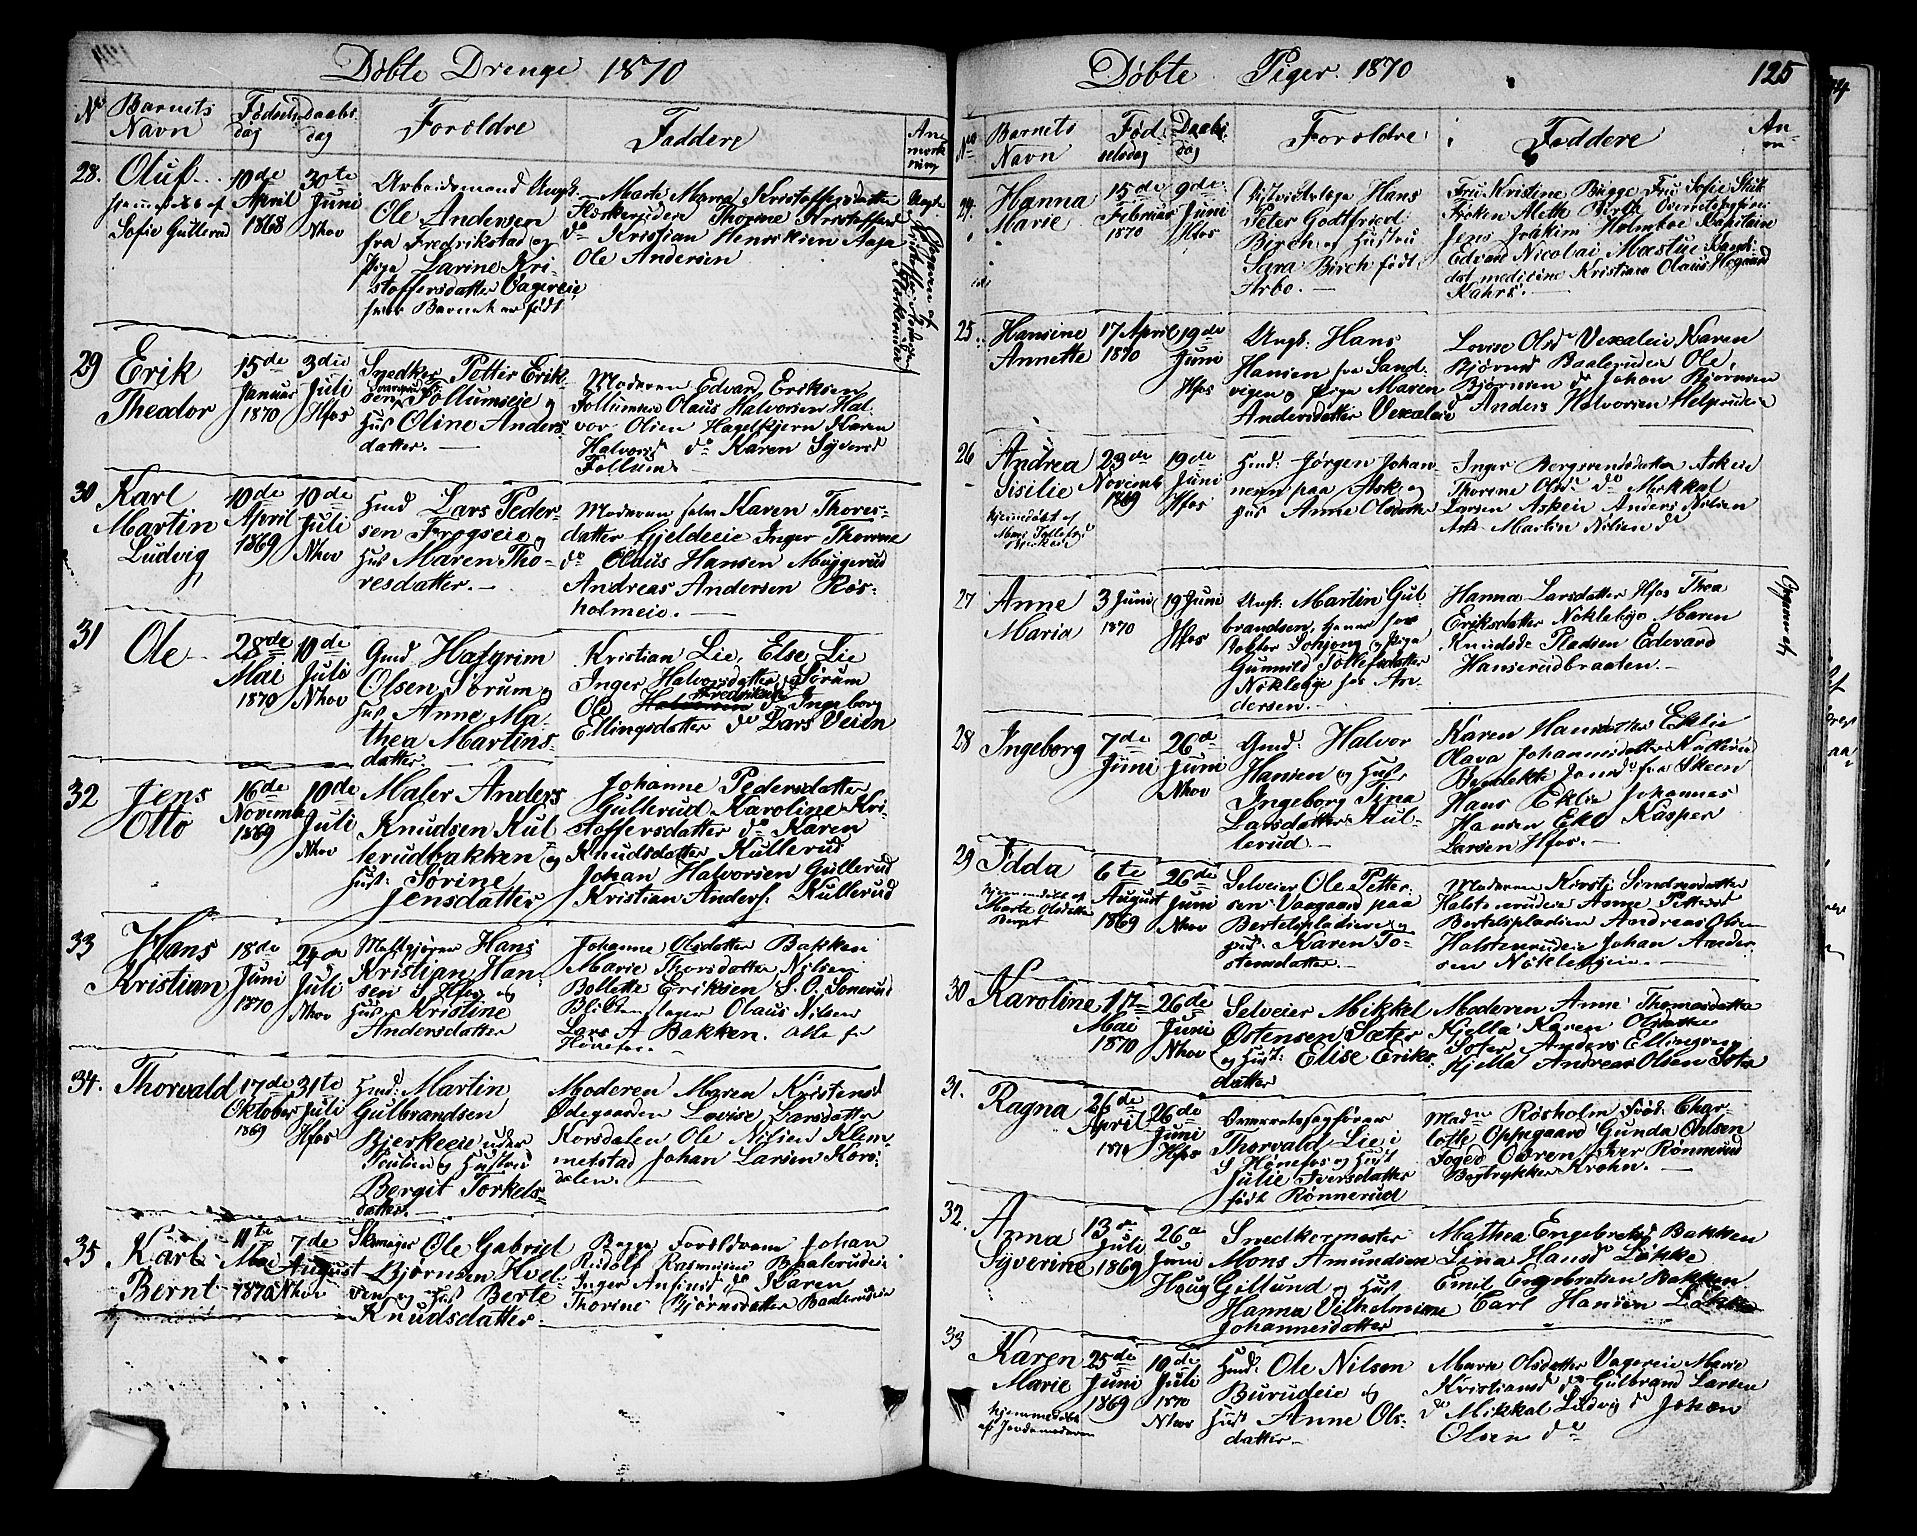 Døbte Drenge 1870
No
Barnets Navn
Fødselsdag
Daabsdag
Forældre
Faddere
Anmerkning
28.
Oluf
hjemmedøbt af
Sofie Gullerud
10de
April
1868
30te
Juni
Nhov
Arbeidsmand Ungk.
Ole Andersen
fra Fredrikstad og
Pige Larine Kri-
stoffersdatter Oppegeie
hvor Barnet er født
Marte Maria Kristoffersdatter
Flaskerudeie Thorine Kristoffersd
do Kristian Henriksen Aasa
Ole Andersen
29
Erik
Theodor
15de
Januar
1870
3die
Juli
Hfos
Snedker Petter Erik-
sen Follumseie og
Hus Oline Anders-
datter.
Moderen Edvard Eriksen
Follumseie Olaus Halvorsen Hal-
vor Olsen Hagelbjern Karen
Halvorsd do Karen Syversd
Follum
30
Karl
Martin
Ludvig
10de
April
1869
10de
Juli
Nhov
Hmd Lars Peder-
sen Frogseie og
Hus Maren Tho-
resdatter.
Moderen selv Karen Thores-
datter Fjeldeie Inger Thorine
do Olaus Hansen Muggerud
Andreas Andersen Røs-
holmeie.
31
Ole
28de
Mai
1870
10de
Juli
Nhov
Gmd Hafgrim
Olsen Sørum og
Hus Anne Ma-
thea Martins-
datter.
Kristian Lie, Else Lie
Inger Halvorsdatter Sørum
Ole Halvorsen Fredriksen do Ingeborg
Ellingsdatter do Lars Veien
32
Jens
Otto
16de
Novemb
1869
10de
Juli
Nhov
Maler Anders
Knudsen Kul-
lerudbakken og
Hust: Sørine
Jensdatter
Johanne Pedersdatter
Gullerud Karoline Kri-
stoffersdatter do Karen
Knudsdatter Kullerud
Johan Halvorsen Gullerud
Kristian Anders. Kullerud
33
Hans
Kristian
18de
Juni
1870
24de
Juli
Nhov
Maltgjører Hans
Kristian Han-
sen i Hfos og
Hus Kristine
Andersdatter
Johanne Olsdatter Bakken
Marie Thorsdatter Nilsen
Bollette Eriksen S. O. Somerud
Blikkenslager Olaus Nilsen
Lars A Bakken. alle fr
Hønefos.
34.
Thorvald
17de
Oktober
1869
31te
Juli
Hfos
Hmd: Martin
Gulbrandsen
Bjerkeeie under
Veien og Hustru
Bergit Torkels-
datter.
Moderen Maren Kristensd
Ødegaarden Lovise Larsdatter
Korsdalen Ole Nilsen Klem-
metstad Johan Larsen Kors-
dalen.
35
Karl
Bernt
11te
Mai
1870
7de
August
Nhov
Ole Gabriel
Bjørnsen Hval-
ven og Hus Berte
Knudsdatter.
Begge Forældrene Johan
Rudolf Rasmusen Baalerudeie
Inger Ansinsd do Karen
Thorine Bjørnsdatter Baalerudeie
Døbte Piger 1870
125
No
Barnets Navn
Fødselsdag
Daabsdag
Forældre
Faddere
An-
24.
Hanna
Marie
15de
Februar
1870
9de
Juni
Hfos
Hans
Peter Godtfried
Birch og Hustru
Sara Birch født
Arbo.
Fru Kristine Bugge Fru Sofie Stub
Frøken Alette Birch Overretsprok
Jens Joakim Holmboe Kapitain
Edvard Nicolai Mastue Kandi-
dat medicine Kristian Olaus Hegaard
Kahrs.
25
Hansine
Annette
17 April
1870
19de
Juni
Hfos
Ungk: Hans
Hansen fra Sand-
vigen og Pige Maren
Andersdatter Vexaleie
Lovise Olsdr Vexaleie Karen
Bjørnsd Baalerudeie Ole
Bjørnsen do Johan Bjørnsen
do Anders Halvorsen Helgerudeie
26
Andrea
Sisilie
hjemmedøbt af
23de
Novemb
1869
19de
Juni
Hfos
Hmd: Jørgen Johan-
nesen paa Ask og
Hus Anne Olsdatter
Inger Bergsvendsdatter Askeie
Thorine Olsdr do Mikkal
Larsen Askeie Anders Nilsen
Ask Martin Nilsen do
27
Anne
Maria
3 Juni
1870
19 Juni
Hfos
Ungk: Martin Gul-
brandsen, tjener hos
Doktor Schjeng og Pige
Gunnild Tollefsdatter
Nøkleby hos An-
dersen.
Hanna Larsdatter Hfos Thea
Eriksdatter Nøkleby Maren
Knudsdr Pladsen Edevard
Hanserudbraaten.
28
Ingeborg
7de
Juni
26de
Juni
Nhov
Gmd: Halvor
Hansen og Hust:
Ingeborg Tina
Larsdatter Kul-
lerud
Karen Hansdatter Eklie
Olava Johannesdatter Kullerud
Benedikte Jonsdr fra Skeen
Hans Eklie Johannes
Hansen Eklie Kasper
Larsen Hfos.
29
Idda
hjemmedøbt af
Marte Olsdatter
Berget
6te
August
1869
26de
Juni
Nhov
Selveier Ole Petter-
sen Vaagaard paa
Bertelspladsen og
Hus: Karen To-
stensdatter.
Moderen Kirsti Sindresdatter
Halstenrudeie Anne Pettersd
Bertelspladsen Andreas Olsen
Halstenrudeie Johan Ander-
sen Nøklebyeie.
30
Karoline
17
Mai
1870
26de
Juni
Nhov
Selveier Mikkel
Østensen Sæter
og Hust: Elise Eriks-
datter
Moderen Anne Thomasdatter
Kjella Karen Olsdatter
Soter Anders Ellingsen
Kjella Andreas Olsen Soter
31.
Ragna
26de
April
1870
26de
Juni
Hfos
Overretssagfører
Thorvald Lie i
S Hønefos og Hust
Julie Iversdatter
født Rønnerud
Madm Røsholm Frøk: Char-
lotte Oppegaard Gunda Ohlsen
Foged Owren Iver Rønnerud
Bogtrykker Krohn.
32.
Anna
Syverine
13de
Juli
1869
26de
Juni
Haug
Snedkermester
Mons Amundsen
Gillund og Hust
Hanna Vilhelmine
Johannesdatter
Mathea Engebretsd Bakken
Lina Hansd Løkke
Emil Engebretsen Bakken
Carl Hansen Løkke
33
Karen
Marie
hjemmedøbt
af Jordmoderen
25de
Juni
1869
10de
Juli
1870
Nhov
Hmd: Ole Nilsen
Burudeie og
Hust Anne Ols-
datter.
Marie Olsdatter Vagereie Marie
Kristiansd do Gulbrand Larsen
do Mikkal Ludvig do Johan
Olsen do